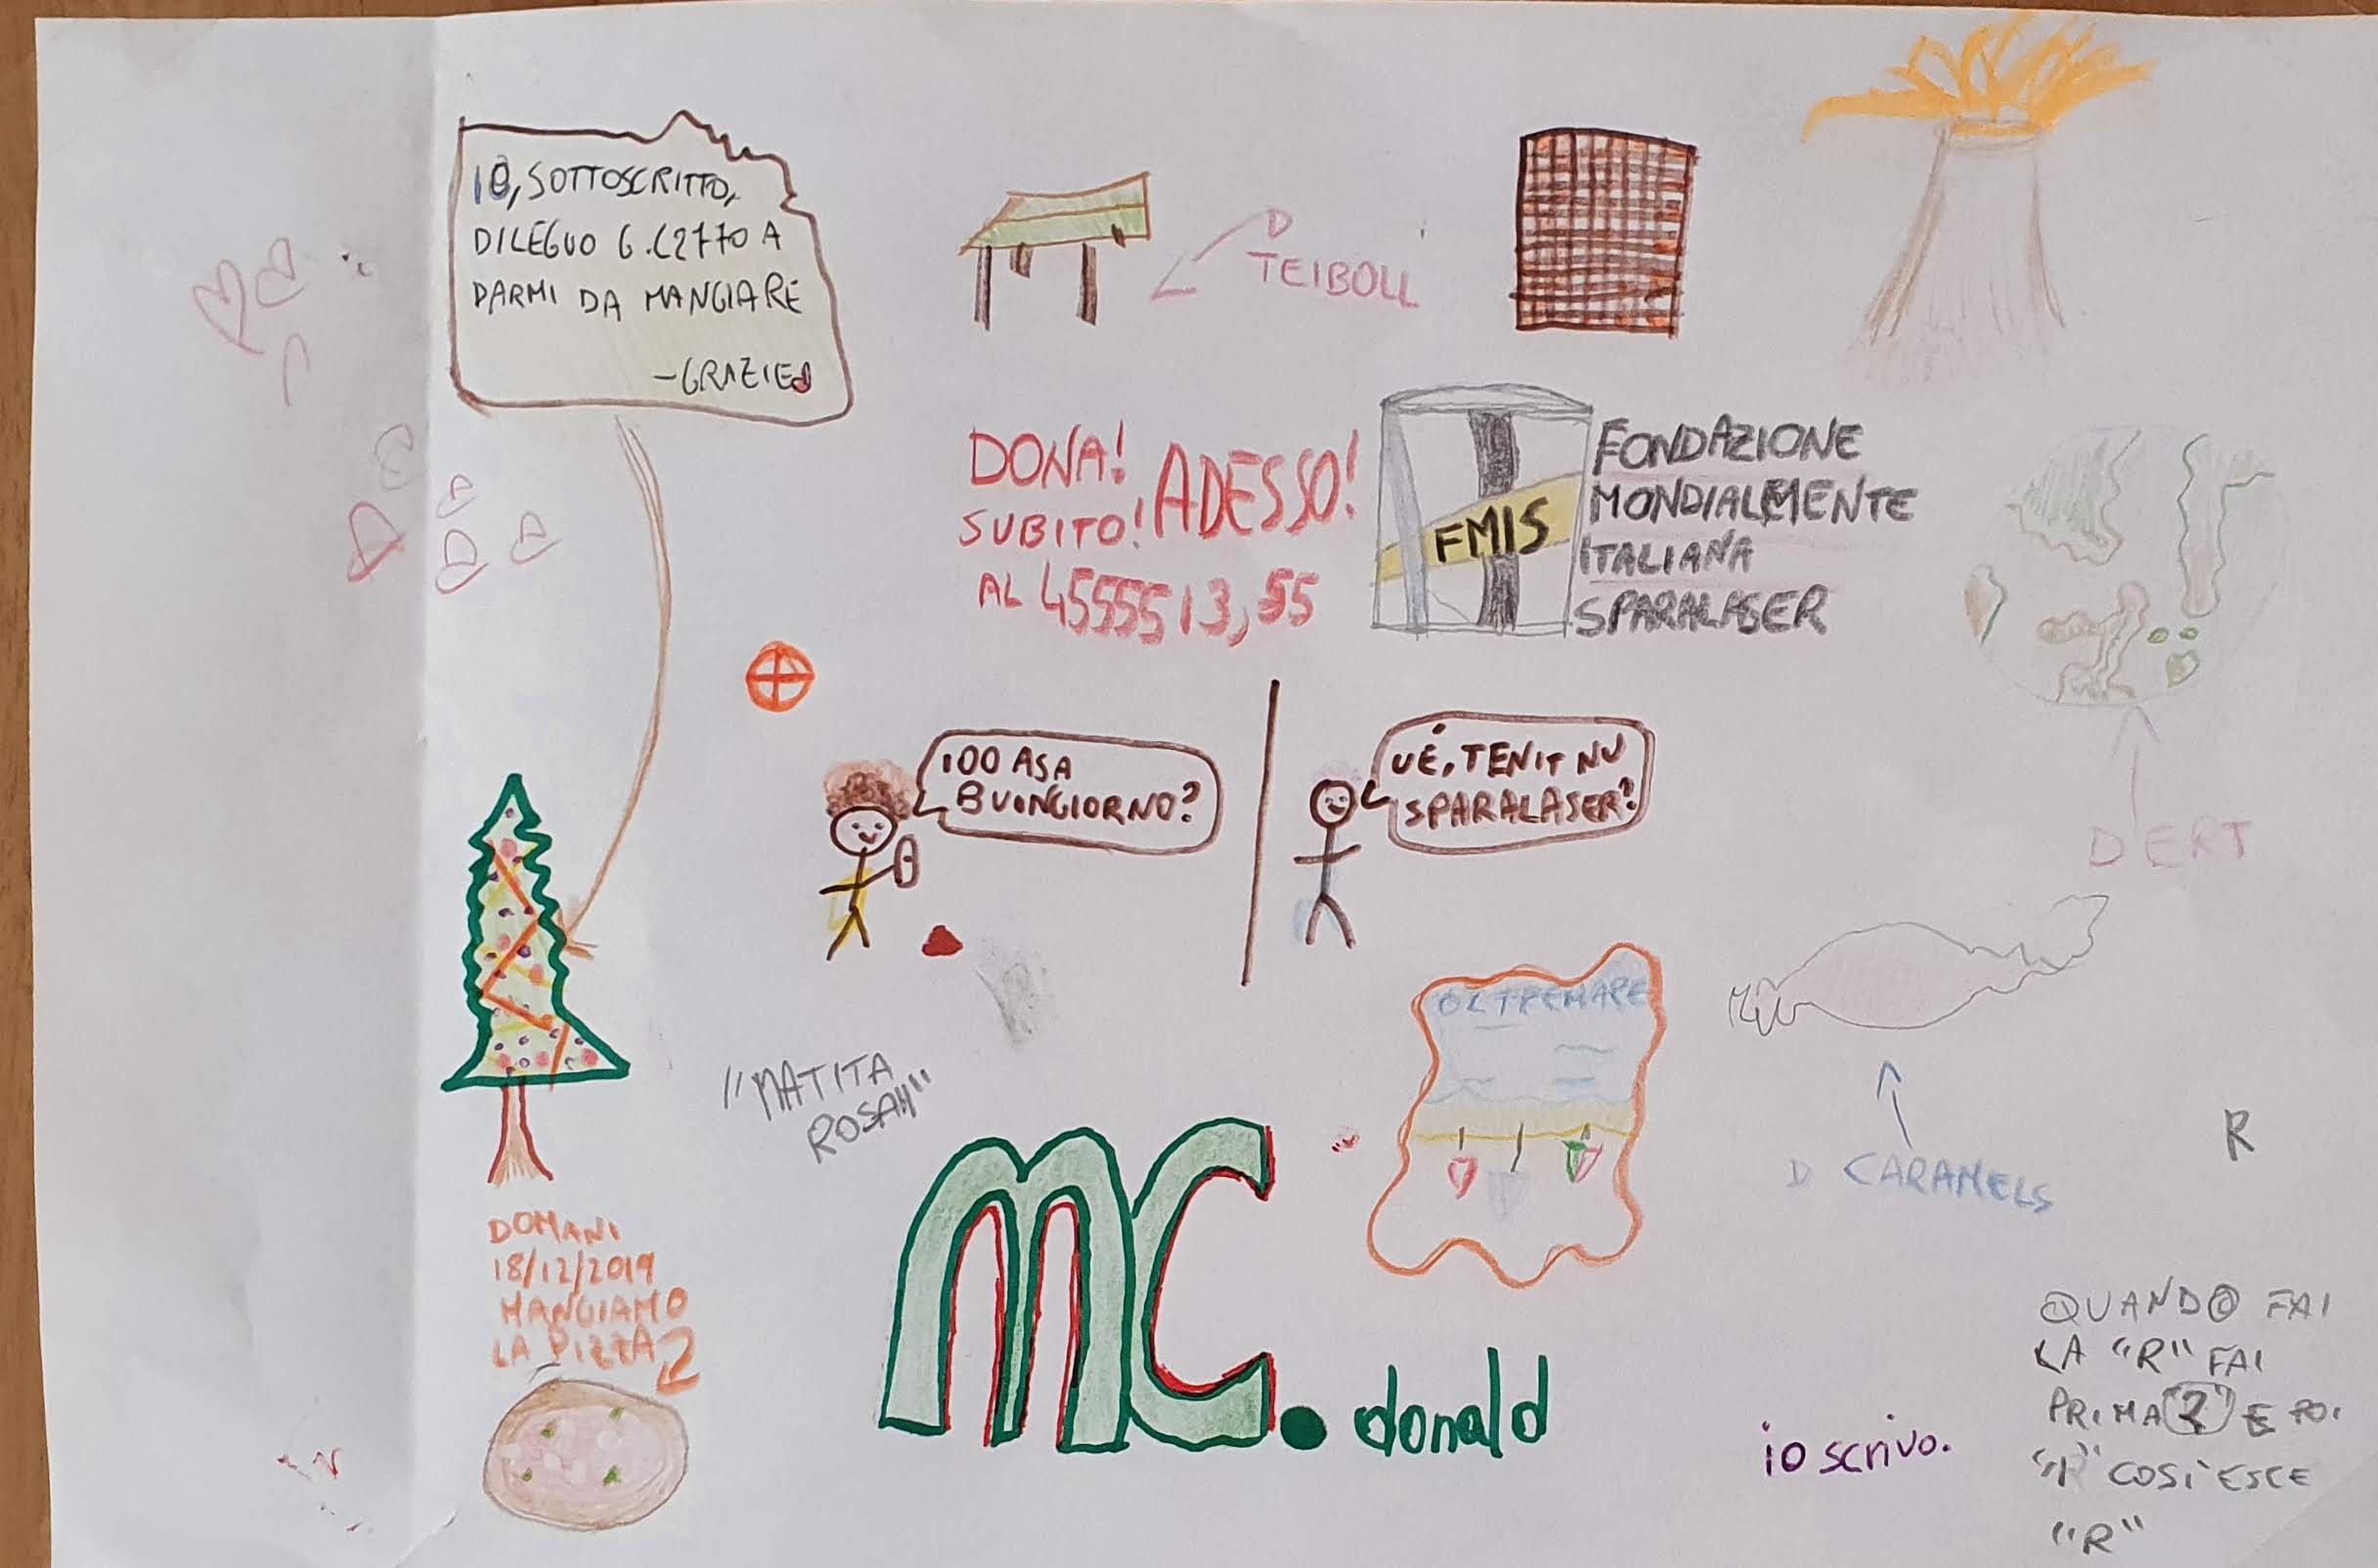 IO, SOTTOSCRITTO,
DILEGUO G. C2770 A
DARMI DA MANGIARE
-GRAZIE
D
TEIBOLL
DONA!
SUBITO! ADESSO!
AL 4555513,55
FMIS
FONDAZIONE
MONDIALMENTE
ITALIANA
SPARALASER
100 ASA
BUONGIORNO?
UÉ, TENIT NU
SPARALASER?
D ERT
OLTREMARE
D CARAMELS
"MATITA
ROSAH"
R
DOMANI
18/12/2019
MANGIAMO
LA PIZZA
MC. donald
io scrivo.
QUANDO FAI
LA "R" FAI
PRIMA "2" E POI
COSÌ ESCE
"R"